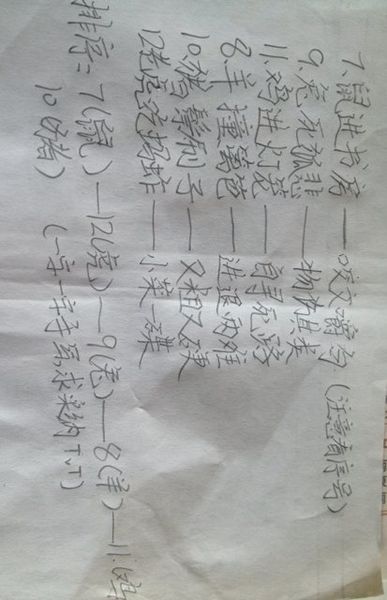 7、鼠进书房——咬文嚼字(注意有序号)
9、兔死狐悲——物伤其类
11、鸡进——自寻死路
8、羊撞篱笆——进退两难
10、猪鬃刷子——又粗又硬
12老虎吃蚂蚱——小菜一碟
排序：7(鼠)—12(虎)—9(兔)—8(羊)—11.(鸡
10(猪)
(一字一字手写,求采纳TvT)